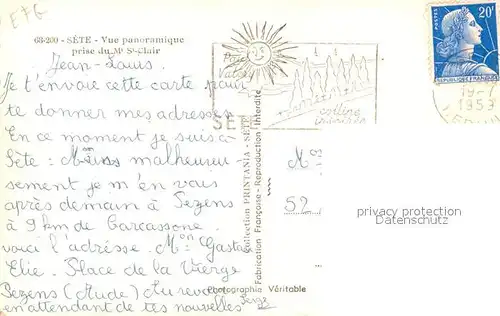 E76
68-200 - SÈTE - Vue panoramique
prise du Mt St-Clair
Jean-Louis.
Je t'envoie cette carte pour
te donner mes adresses.
En ce moment je suis à
Sète : Mais malheureu-
sement je m'en vais
après demain à Pezens
à 9 km de Carcassonne.
voici l'adresse. Mon Gaston
Elie. Place de la Vierge
Pezens (Aude) Au revoir
en attendant de tes nouvelles
Serge
Collection PRINTANIA - SÈTE
Fabrication Française - Reproduction Interdite
Photographie Véritable
SÈTE
colline
POSTES
20F
REPUBLIQUE FRANÇAISE
1959
Mon
52
privacy protection
VDMedien24.de